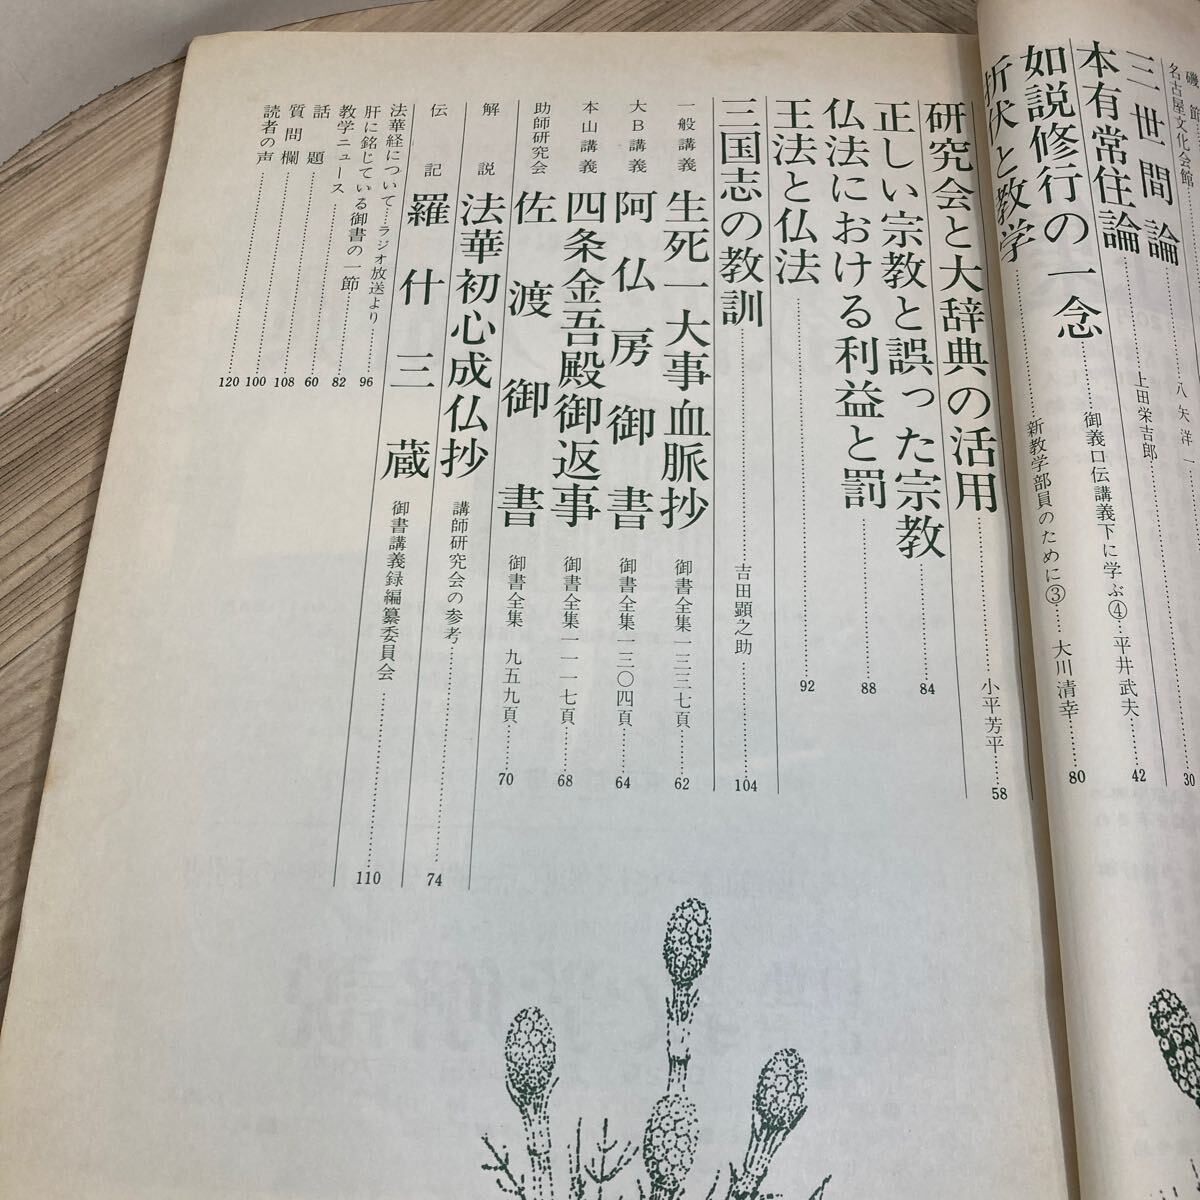 名古屋文化会館
三世間論……八矢洋一……30
本有常住論……上田栄吉郎
如説修行の一念……御義口伝講義下に学ぶ④……平井武夫……42
折伏と教学……新教学部員のために③……大川清幸……80
研究会と大辞典の活用……小平芳平……58
正しい宗教と誤った宗教……84
仏法における利益と罰……88
王法と仏法……92
三国志の教訓……吉田顕之助……104
一般講義 生死一大事血脈抄 御書全集一三三七頁……62
大B講義 阿仏房御書 御書全集一三〇四頁……64
本山講義 四条金吾殿御返事 御書全集一一一七頁……68
助師研究会 佐渡御書 御書全集九五九頁……70
解説 法華初心成仏抄 講師研究会の参考……74
伝記 羅什三蔵 御書講義録編纂委員会……110
法華経について―ラジオ放送より……96
肝に銘じている御書の一節……82
教学ニュース……60
話題……108
質問欄……100
読者の声……120